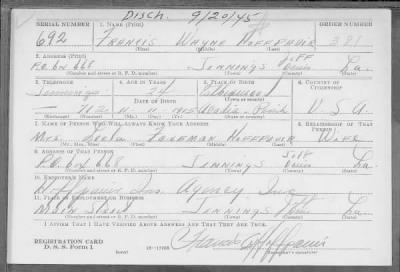 Disch. 9/20/45
SERIAL NUMBER 1. NAME (Print) ORDER NUMBER
692 FRANCIS WAYNE HOFFPAUIR 381
(First) (Middle) (Last)
2. ADDRESS (Print)
P.O. Box 668 JENNINGS JEFF DAVIS La.
(Number and street or R. F. D. number) (Town) (County) (State)
3. TELEPHONE 4. AGE IN YEARS 5. PLACE OF BIRTH 6. COUNTRY OF CITIZENSHIP
Jennings 24
DATE OF BIRTH
U.S.A.
(Exchange) (No.) (Mo.) (Day) (Yr.) (State or country)
7. NAME OF PERSON WHO WILL ALWAYS KNOW YOUR ADDRESS 8. RELATIONSHIP OF THAT PERSON
Mrs. FOREMAN HOFFPAUIR WIFE
(Mr., Mrs., Miss) (First) (Middle) (Last)
9. ADDRESS OF THAT PERSON
P.O. Box 668 JENNINGS JEFF DAVIS La.
(Number and street or R. F. D. number) (Town) (County) (State)
10. EMPLOYER'S NAME
Hoffpauir Ins. Agency Inc.
11. PLACE OF EMPLOYMENT OR BUSINESS
MAIN STREET JENNINGS La.
(Number and street or R. F. D. number) (Town) (County) (State)
I AFFIRM THAT I HAVE VERIFIED ABOVE ANSWERS AND THAT THEY ARE TRUE.
REGISTRATION CARD
D. S. S. Form 1 (over) Francis W Hoffpauir
(Registrant's signature)